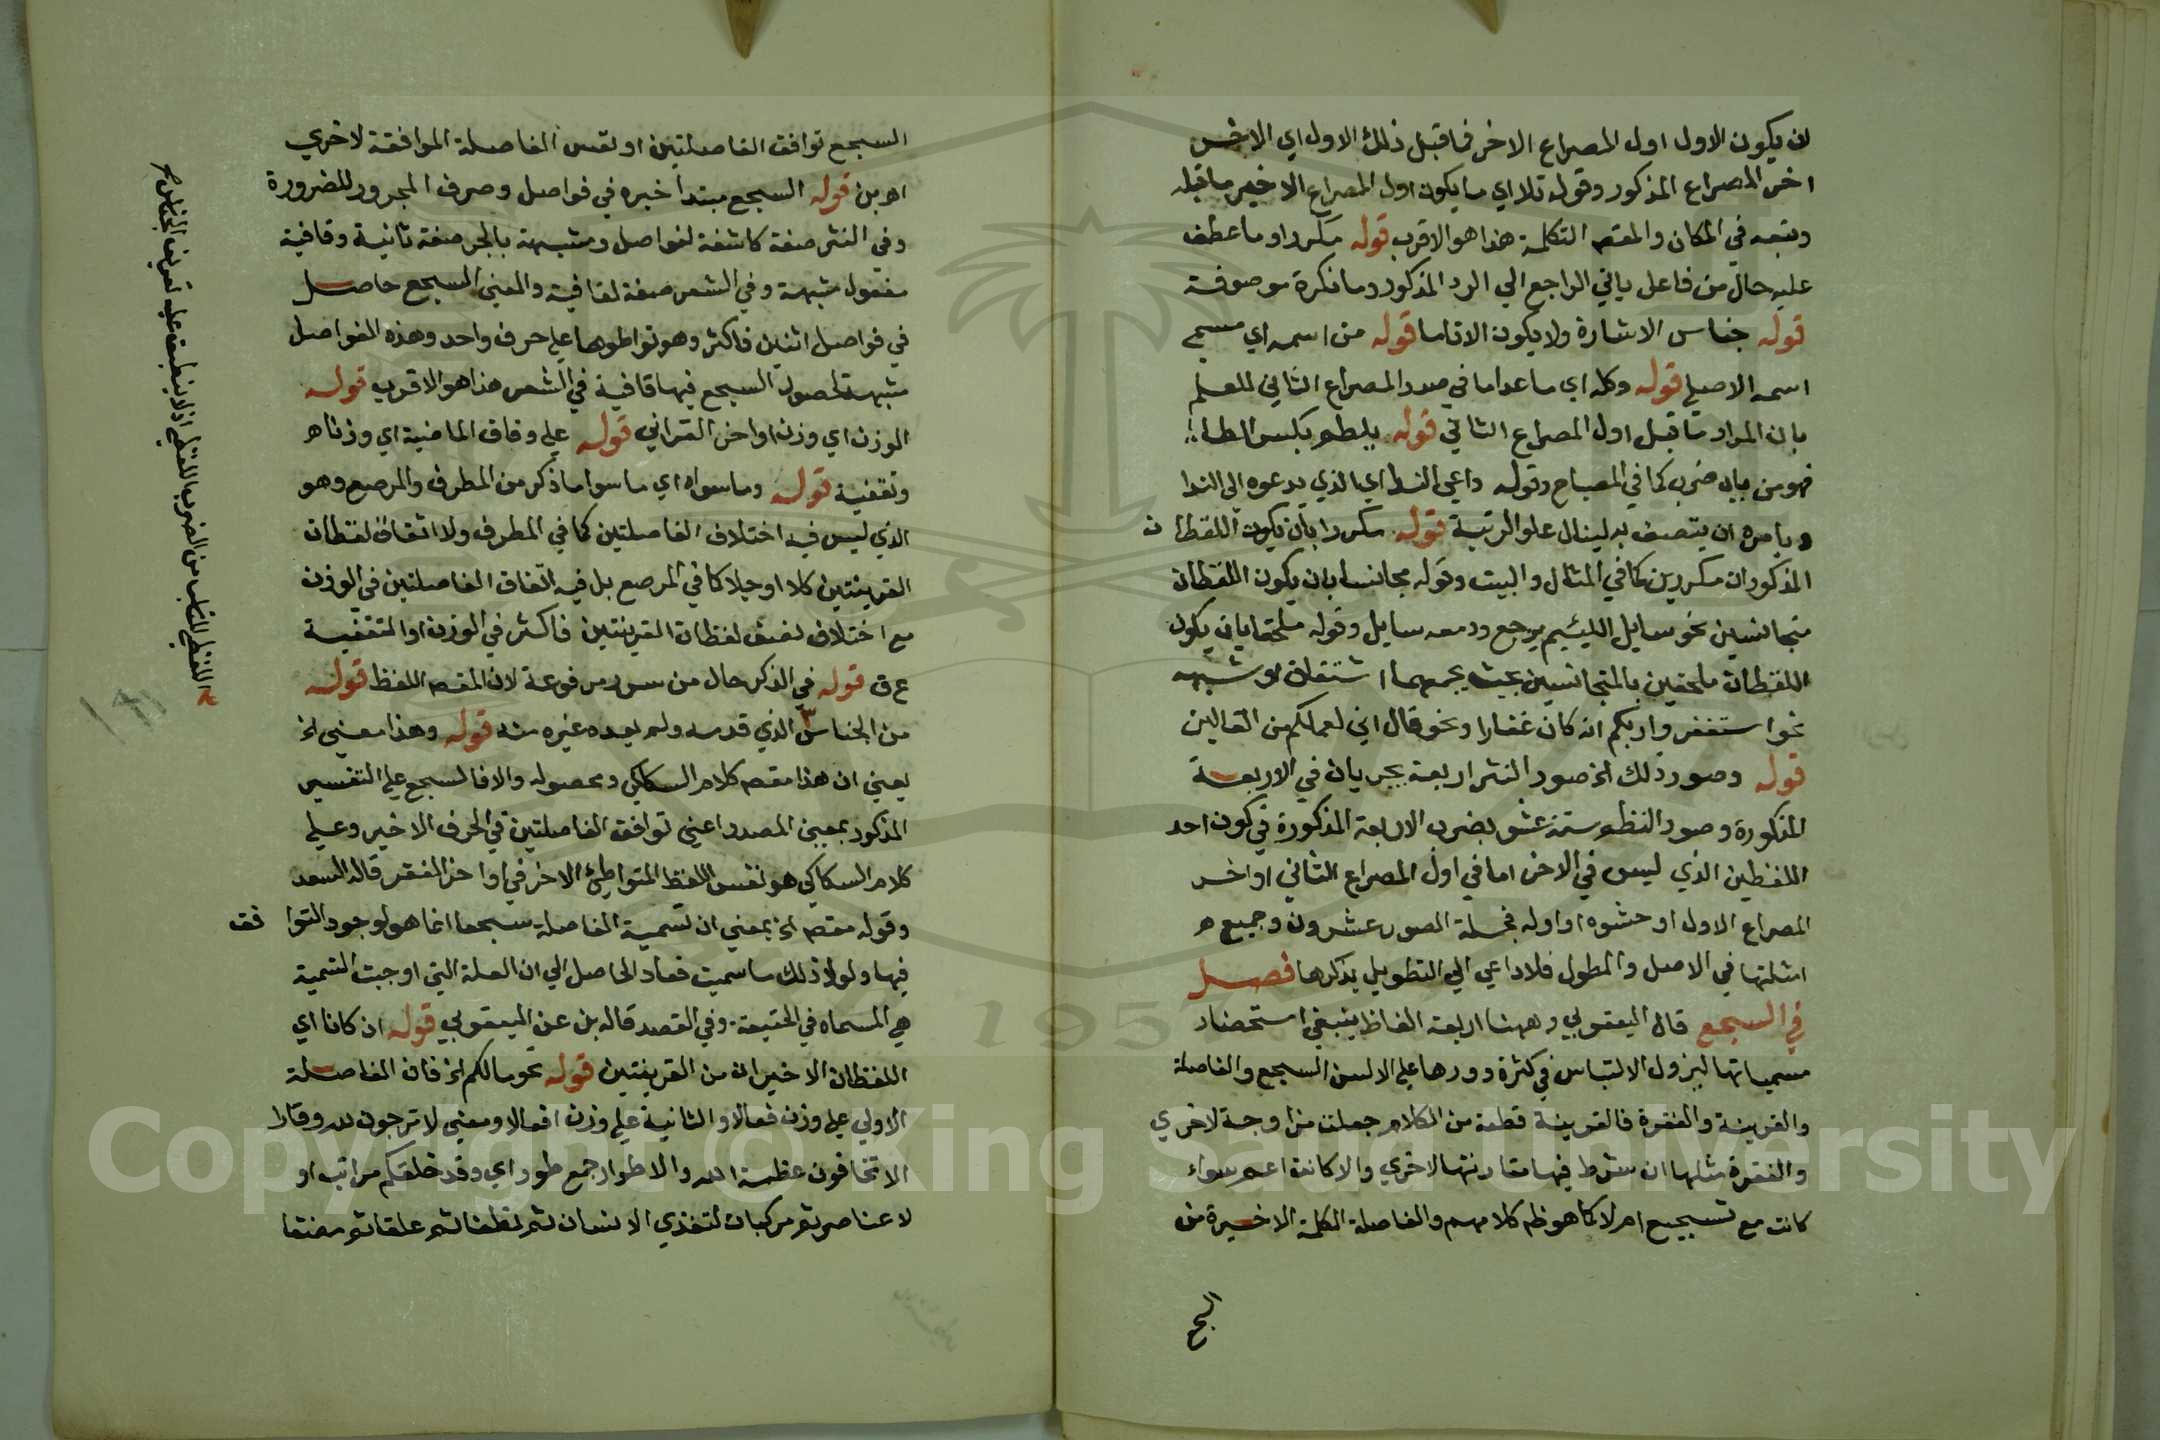 لان يكون الاول اول المصراع الاخر فما قبل ذلك الاول اي الاخر
اخر المصراع المذكور وقوله تلا اي ما يكون اول المصراع الاخير ما قبله
وتبعه في المكان والمقصم التكلمة هذا هو الاقرب قوله مكررا وما عطف
عليه حال من فاعل ياتي الراجع الي الرد المذكور وما نكرة موصوفة
قوله جناس الاشارة ولا يكون الا تاما قوله من اسمه اي مسمي
اسمه الاصلي قوله وكله اي ما عدا ما في صدر المصراع الثاني للعلم
بان المراد ما قبل اول المصراع الثاني قوله يلطم بكسر الطاء
فهو من باب ضرب كما في المصباح وقوله داعي الندا اي الذي يدعوه الي الندا
ويامره ان يتصف به لينال علو الرتبة قوله مكررا بان يكون اللفظان
المذكوران مكررين كما في المثال والبيت وقوله مجانسا بان يكون اللفظان
متجانسين نحو سايل اللئيم يرجع ودمعه سايل وقوله ملحقا بان يكون
اللفظان ملحقين بالمتجانسين بحيث يجمعهما اشتقاق او شبهه
نحو استغفروا ربكم انه كان غفارا ونحو قال اني لعملكم من القالين
قوله وصور ذلك الخ صور النثر اربعة يجريان في الاربعة
المذكورة وصور النظم ستة عشر بضرب الاربعة المذكورة في كون احد
اللفظين الذي ليس في الاخر اما في اول المصراع الثاني او اخر
المصراع الاول او حشوه او اوله فجملة الصور عشرون وجميع
امثلتها في الاصل والمطول فلا داعي الي التطويل بذكرها فصل
في السجع قال اليعقوبي وههنا اربعة الفاظ ينبغي استحضار
مسمياتها ليزول الالتباس في كثرة دورها علي الالسن السجع والفاصلة
والقرينة والفقرة فالقرينة قطعة من الكلام جعلت مزاوجة لاخري
والفقرة مثلها ان شرط فيها مقارنتها لاخري والا كانت اعم سواء
كانت مع تسجيع ام لا كما هو ظم كلامهم والفاصلة الكلمة الاخيرة من
السجع
السجع توافق الفاصلتين او نفس الفاصلة الموافقة لاخري
اهـ بن قوله السجع مبتدأ خبره في فواصل وصرف المجرور للضرورة
وفي النثر صفة كاشفة لفواصل ومشبهة بالجر صفة ثانية وقافية
مفعول مشبهة وفي الشعر صفة لقافية والمعني السجع حاصل
في فواصل اثنين فاكثر وهو تواطوها علي حرف واحد وهذه الفواصل
مشبهة لحصول السجع فيها قافية في الشعر هذا هو الاقرب قوله
الوزن اي وزن اواخر القراني قوله علي وفاق الماضية اي وزنا
وتقفية قوله وما سواه اي ما سوا ما ذكر من المطرف والمرصع وهو
الذي ليس فيه اختلاف الفاصلتين كما في المطرف ولا اتفاق لفظان
القرينتين كلا او جلا كما في المرصع بل فيه اتفاق الفاصلتين في الوزن
مع اختلاف بعض لفظات القرينتين فاكثر في الوزن او التقفية
ع ق قوله في الذكر حال من سور مرفوعة لان المقصم اللفظ قوله
من الجناس الذي قدمه ولم يعده غيره منه قوله وهذا معني الخ
يعني ان هذا مقصم كلام السكاكي ومحصوله والا فالسجع علي التفسير
المذكور بمعني المصدر اعني توافق الفاصلتين في الحرف الاخير وعلي
كلام السكاكي هو نفس اللفظ المتواطئ الاخر في اواخر الفقر قاله السعد
وقوله مقصم الخ بمعني ان تسمية الفاصلة سجعا انما هو لوجود التوافق
فيها ولولا ذلك ما سميت فعاد الحاصل الي ان العلة التي اوجبت التسمية
هي المسماه في الحقيقة وفي القصد قاله بن عن اليعقوبي قوله ان كانا اي
اللفظان الاخيران من القرينتين قوله نحو مالكم الخ فان الفاصلة
الاولي علي وزن فعالا والثانية علي وزن افعالا ومعني لا ترجون لله وقارا
لا تخافون عظمة الله والاطوار جمع طور اي وقد خلقكم مراتب او
لا عناصر ثم مركبات لتغذي الانسان ثم نطفا ثم علقا ثم مضغا